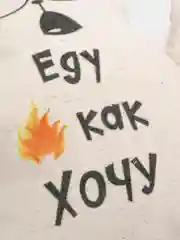 Еду
как
Хочу